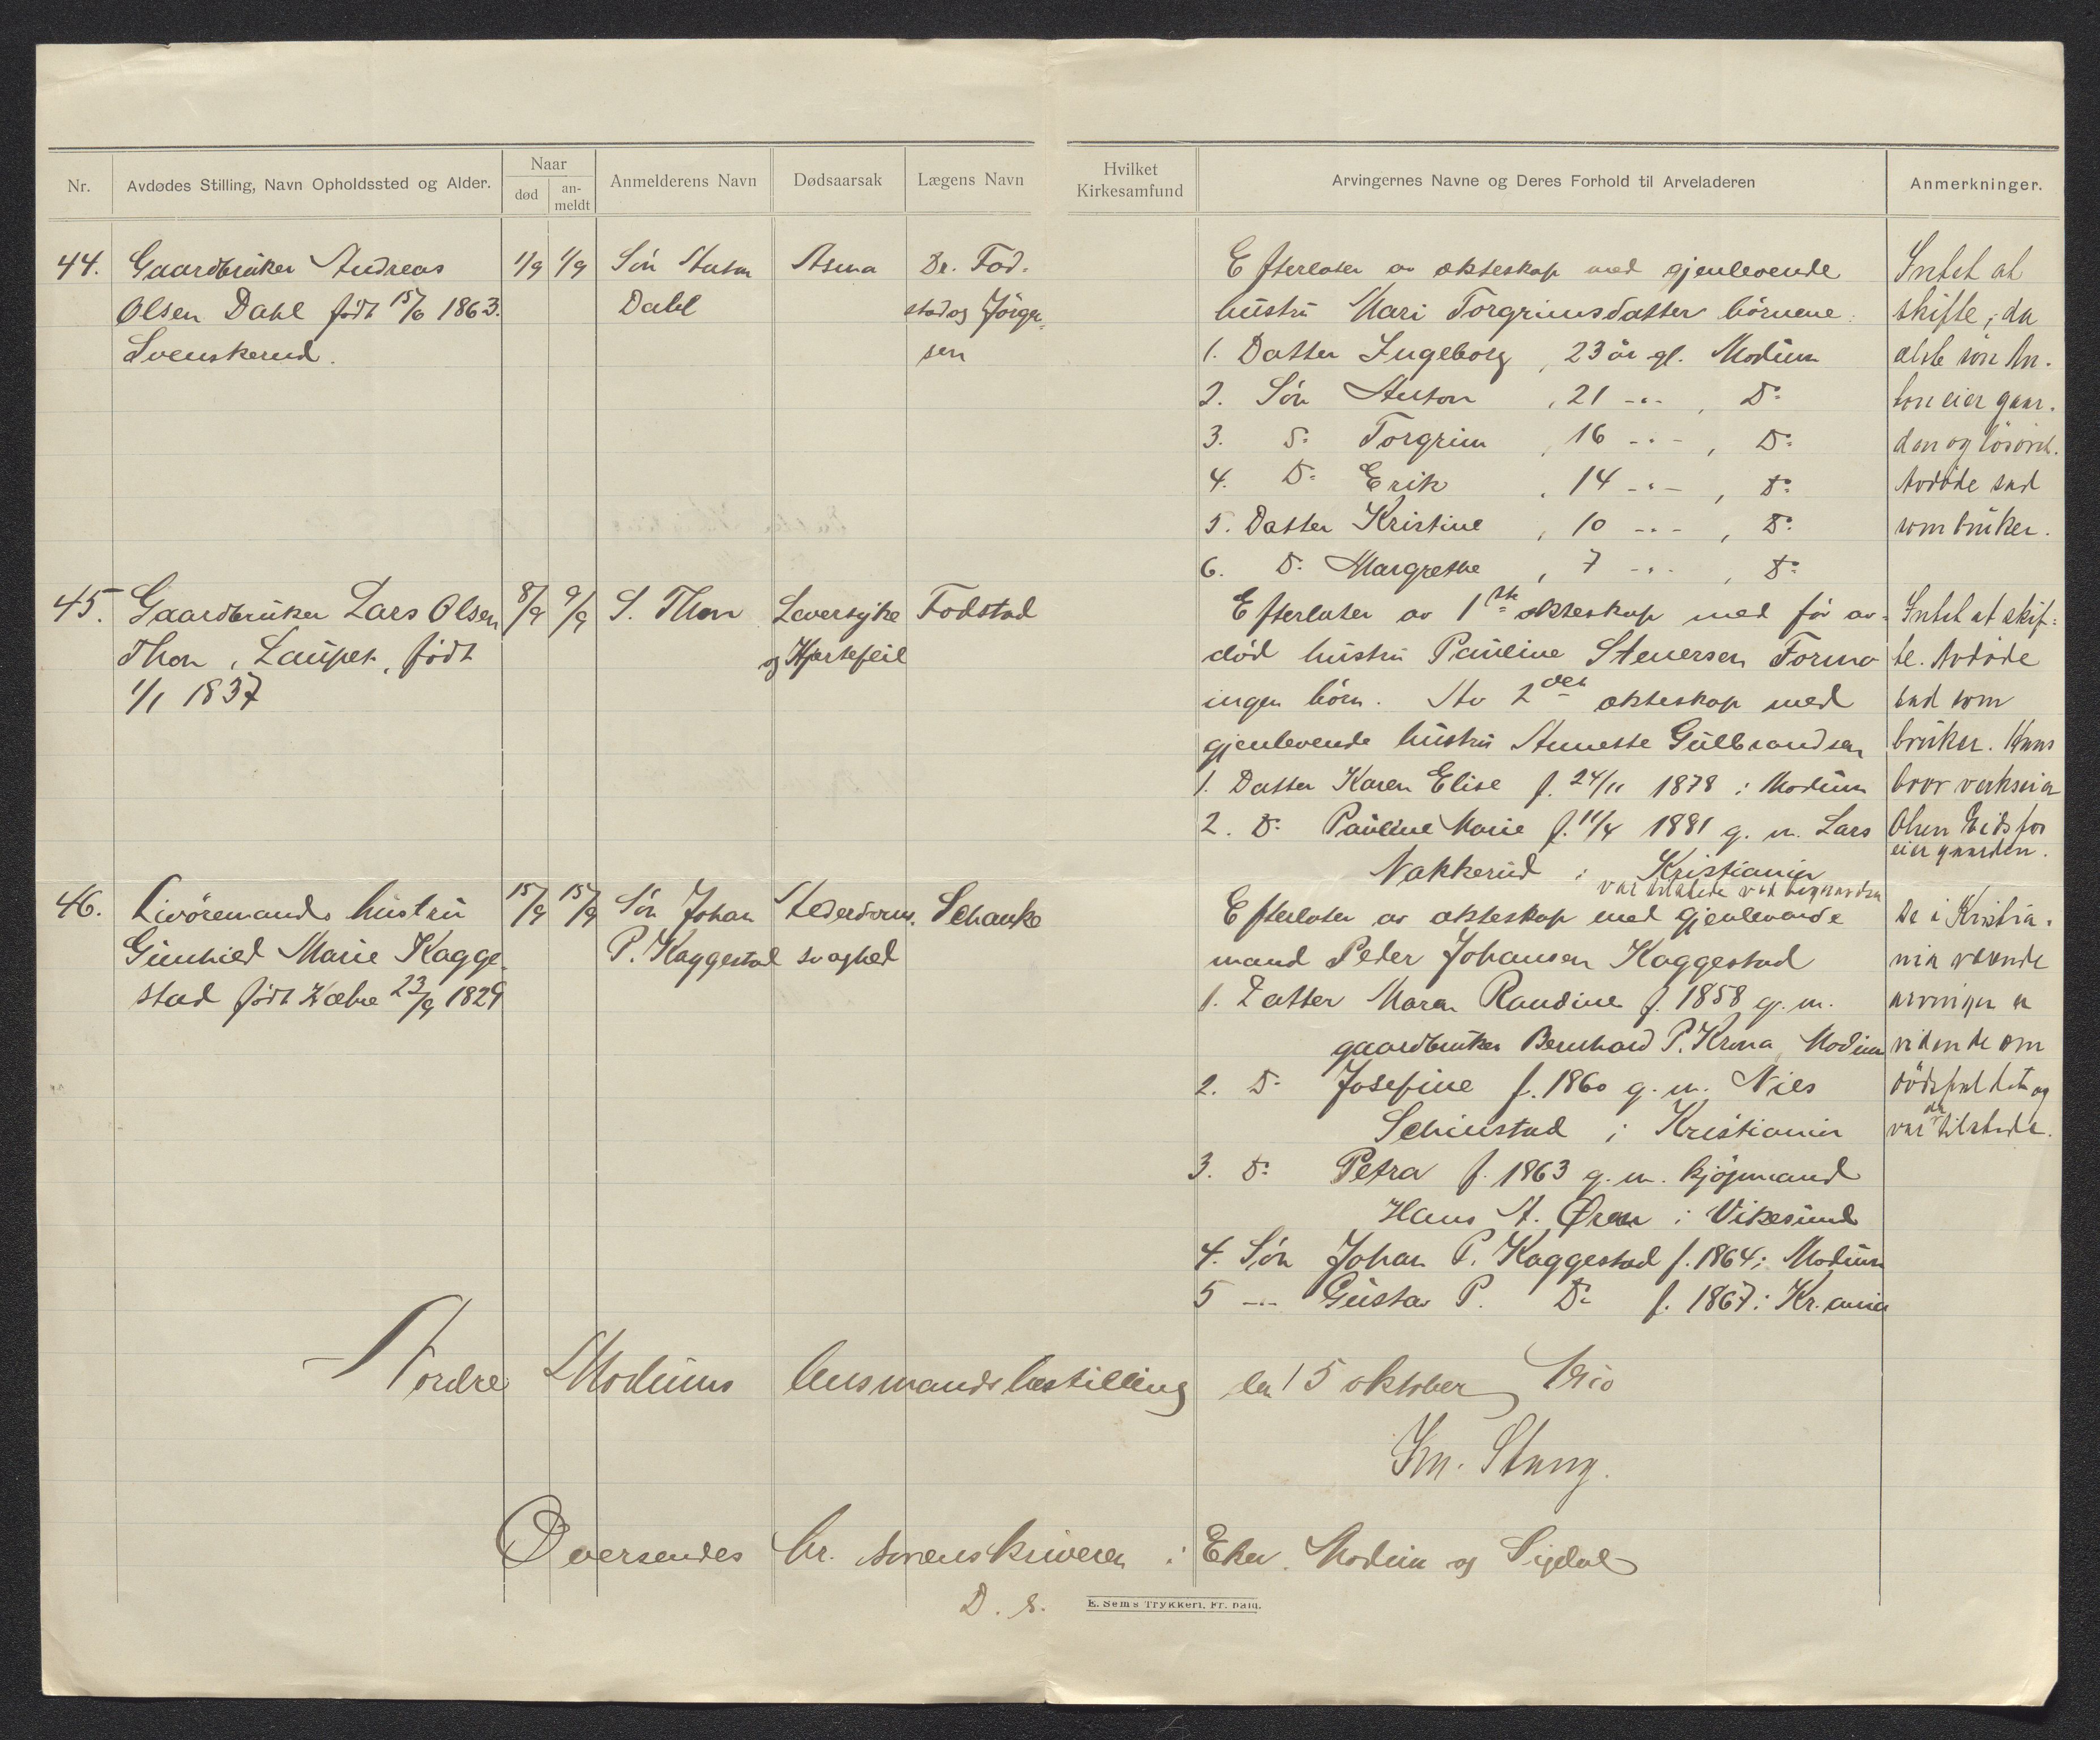 Nr.
Avdødes Stilling, Navn Opholdssted og Alder.
Naar
død
an-
meldt
Anmelderens Navn
Dødsaarsak
Lægens Navn
Hvilket
Kirkesamfund
Arvingernes Navne og Deres Forhold til Arveladeren
Anmerkninger.
44. Gaardbruker Andreas
Olsen Dahl født 15/6 1863.
Svenskerud.
1/9 1/9
Søn Anton
Dahl
Asma
Dr. Fod-
stad og Jørgen-
sen
Efterlater av ekteskap med gjenlevende
hustru Mari Torgrimsdatter børnene:
1. Datter Ingeborg, 23 år gl. Modum
2. Søn Anton, 21 -"-, Do
3. Do Torgrim, 16 -"-, Do
4. Do Erik, 14 -"-, Do
5. Datter Kristine, 10 -"-, Do
6. Do Margrethe, 7 -"-, Do
Intet at
skifte, da
elste søn An-
ton eier gaar-
den og løsøret.
Avdøde sad
som bruker.
45. Gaardbruker Lars Olsen
Thon, Laupet, født
1/1 1837
8/9 9/9
S. Thon
Leversyke
og Hjertefeil
Fodstad
Efterlater av 1ste ekteskap med før av-
død hustru Pauline Stenersen Formo
ingen børn. Av 2det ekteskap med
gjenlevende hustru Annette Gulbrandsen
1. Datter Karen Elise f. 24/11 1878 i Modum
2. Do Pauline Marie f. 11/4 1881 g. m. Lars
Nakkerud i Kristiania
Intet at skif-
te. Avdøde
sad som
bruker. Hans
bror verkseier
Olsen Eidsfos
eier gaarden.
46. Livøremands hustru
Gunhild Marie Kagge-
stad født Købke 23/9 1829
15/9 15/9
Søn Johan
P. Kaggestad
Alderdoms-
svaghed
Schanke
var tilstede ved begravelsen
Efterlater av ekteskap med gjenlevende
mand Peder Johansen Kaggestad
1. Datter Maren Randine f. 1858 g. m.
gaardbruker Bernhard P. Krona, Modum
2. Do Josefine f. 1860 g. m. Nils
Schinstad i Kristiania
3. Do Petra f. 1863 g. m. kjøpmand
Hans A. Øren i Vikesund
4. Søn Johan P. Kaggestad f. 1864 i Modum
5 -"- Gustav P. Do f. 1867 i Kr.ania
De i Kristia-
nia værende
arvinger er
vidende om
dødsfaldet og
var der tilstede.
Nordre Modums lensmandsbestilling den 15 oktober 1910
Kr. Stang.
Oversendes hr. sorenskriveren i Eker, Modum og Sigdal
D. s.
E. Sem's Trykkeri, Fr.hald.